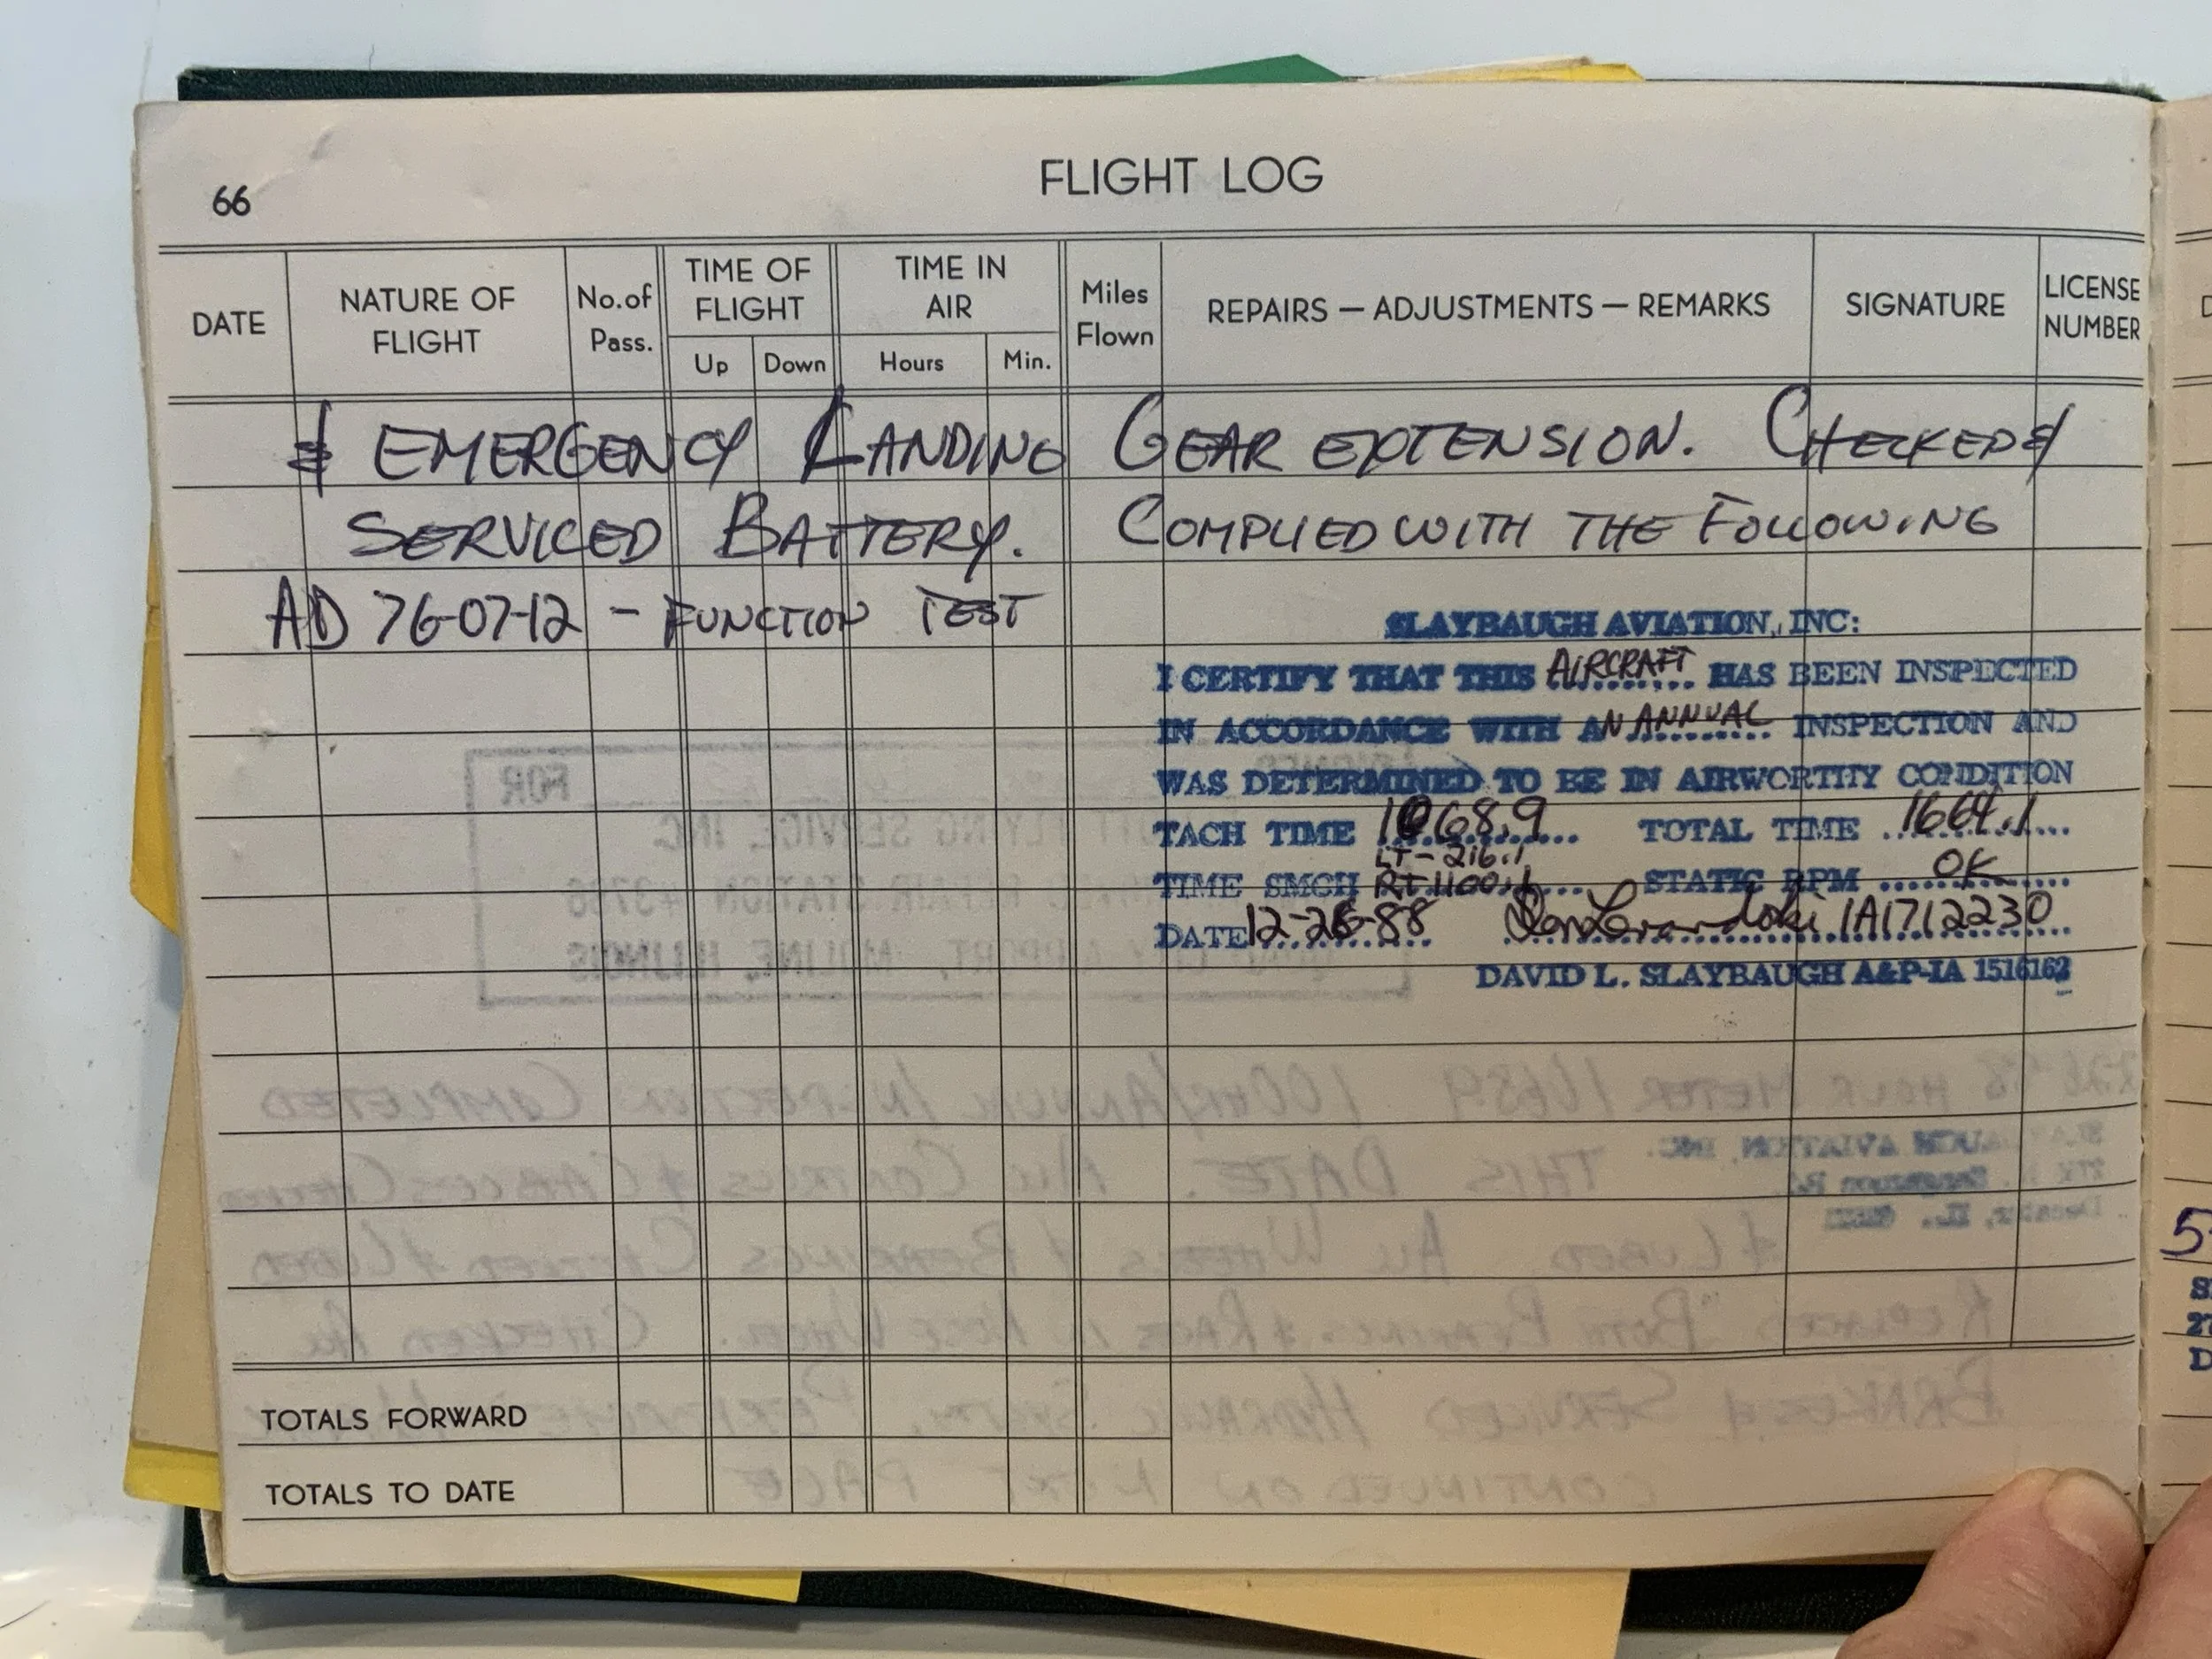 66
FLIGHT LOG
DATE
NATURE OF FLIGHT
No.of Pass.
TIME OF FLIGHT
Up
Down
TIME IN AIR
Hours
Min.
Miles Flown
REPAIRS — ADJUSTMENTS — REMARKS
SIGNATURE
LICENSE NUMBER
& EMERGENCY LANDING GEAR EXTENSION. CHECKED &
SERVICED BATTERY. COMPLIED WITH THE FOLLOWING
AD 76-07-12 - FUNCTION TEST
SLAYBAUGH AVIATION, INC:
I CERTIFY THAT THIS AIRCRAFT HAS BEEN INSPECTED
IN ACCORDANCE WITH AN ANNUAL INSPECTION AND
WAS DETERMINED TO BE IN AIRWORTHY CONDITION
TACH TIME 1068.9 TOTAL TIME 1664.1
LT- 216.1
TIME SMOH RT 1100.1 STATIC RPM OK
DATE 12-26-88 IA1712230
DAVID L. SLAYBAUGH A&P-IA 1516162
TOTALS FORWARD
TOTALS TO DATE